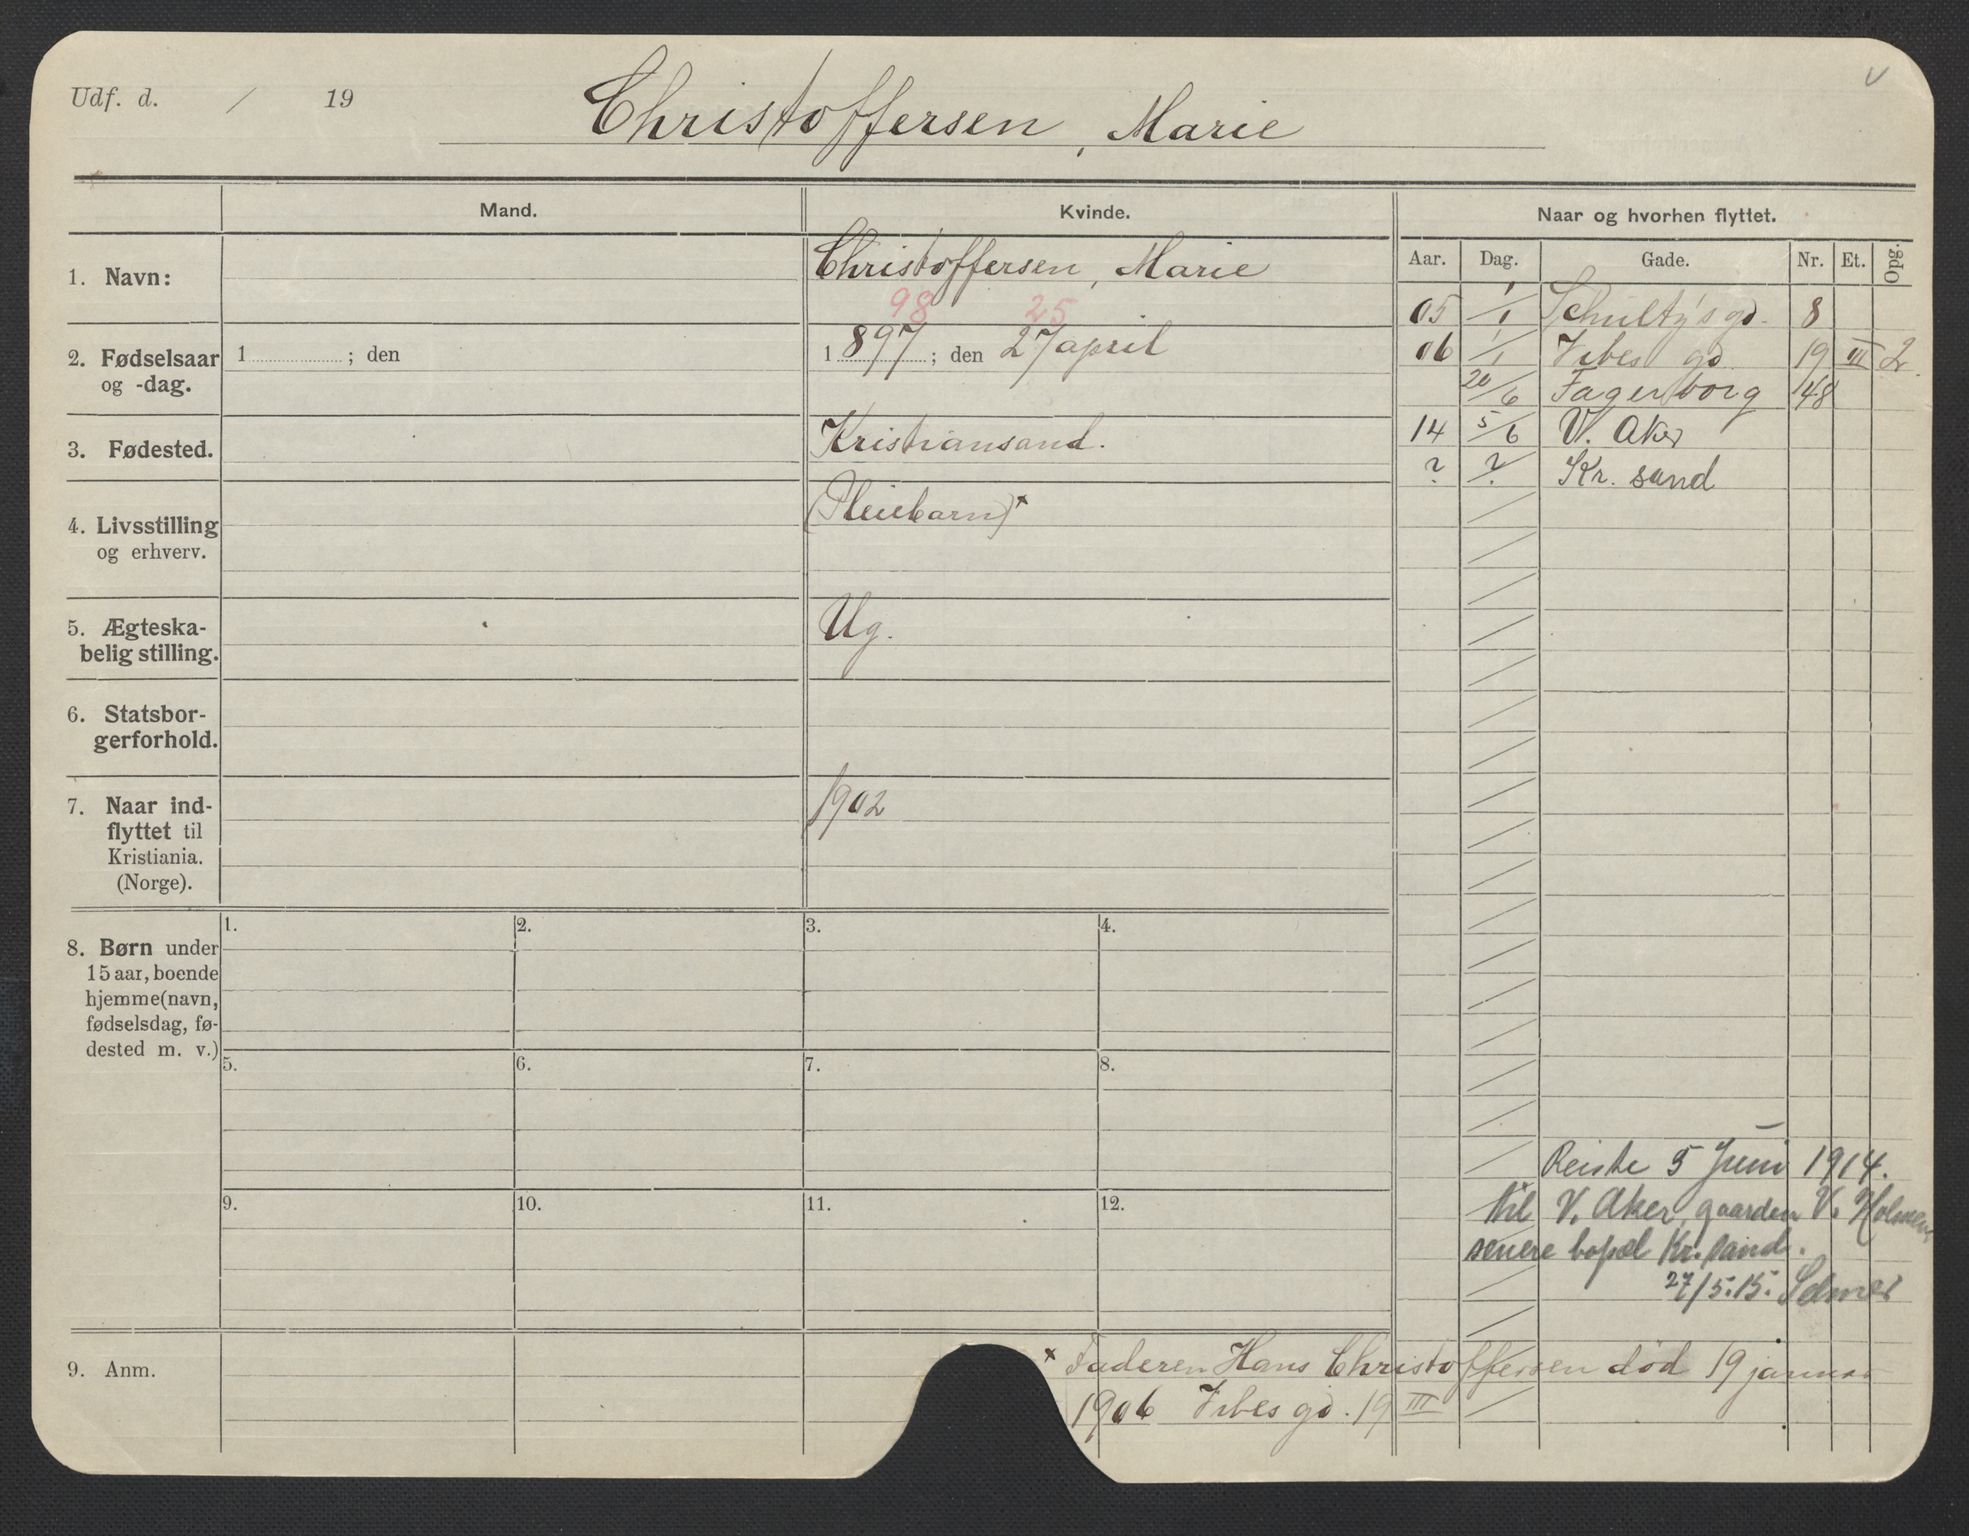 Udf. d. / 19
Christoffersen, Marie
v
Mand.
Kvinde.
Naar og hvorhen flyttet.
Aar. Dag. Gade. Nr. Et. Opg.
1. Navn:
Christoffersen, Marie
98 25
2. Fødselsaar
og -dag.
1 ; den
1897 ; den 27 april
3. Fødested.
Kristiansand.
4. Livsstilling
og erhverv.
(Pleiebarn)x
5. Ægteska-
belig stilling.
Ug.
6. Statsbor-
gerforhold.
7. Naar ind-
flyttet til
Kristiania.
(Norge).
1902
05 1/1 Schultz's gd. 8
06 1/1 Vibes gd 19 III 2
20/6 Fagerborg 48
14 5/6 V. Aker
? ? Kr. sand
8. Børn under
15 aar, boende
hjemme (navn,
fødselsdag, fø-
dested m. v.)
1. 2. 3. 4.
5. 6. 7. 8.
9. 10. 11. 12.
Reiste 5 Juni 1914.
til V. Aker, gaarden V. Holmen
senere bopæl Kr. sand.
27/5.15. Selmer
9. Anm.
x Faderen Hans Christoffersen død 19 januar
1906 Vibes gd. 19 III